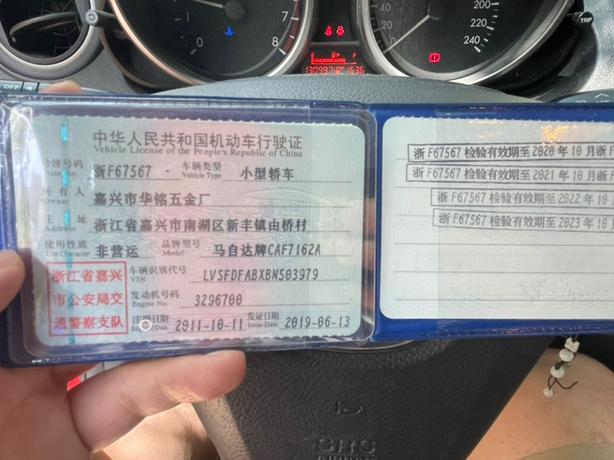 中华人民共和国机动车行驶证
Vehicle License of the People's Republic of China
号牌号码 浙F67567 车辆类型 小型轿车
Vehicle Type
所有人 嘉兴市华铭五金厂
Owner
住址 浙江省嘉兴市南湖区新丰镇由桥村
Address
使用性质 非营运 品牌型号 马自达牌CAF7162A
Use Character Model
浙江省嘉兴
市公安局交
通警察支队
车辆识别代号 LVSFDFABXBN503979
VIN
发动机号码 3296700
Engine No.
注册日期 2011-10-11 发证日期 2019-06-13
Issue Date
浙F67567 检验有效期至2020年10月浙F
浙F67567 检验有效期至2021年10月浙F
浙F67567 检验有效期至2022年10月
浙F67567 检验有效期至2023年10月
0
1
7
8
E
F
0
200
220
240
TRIP
OFF
SRS